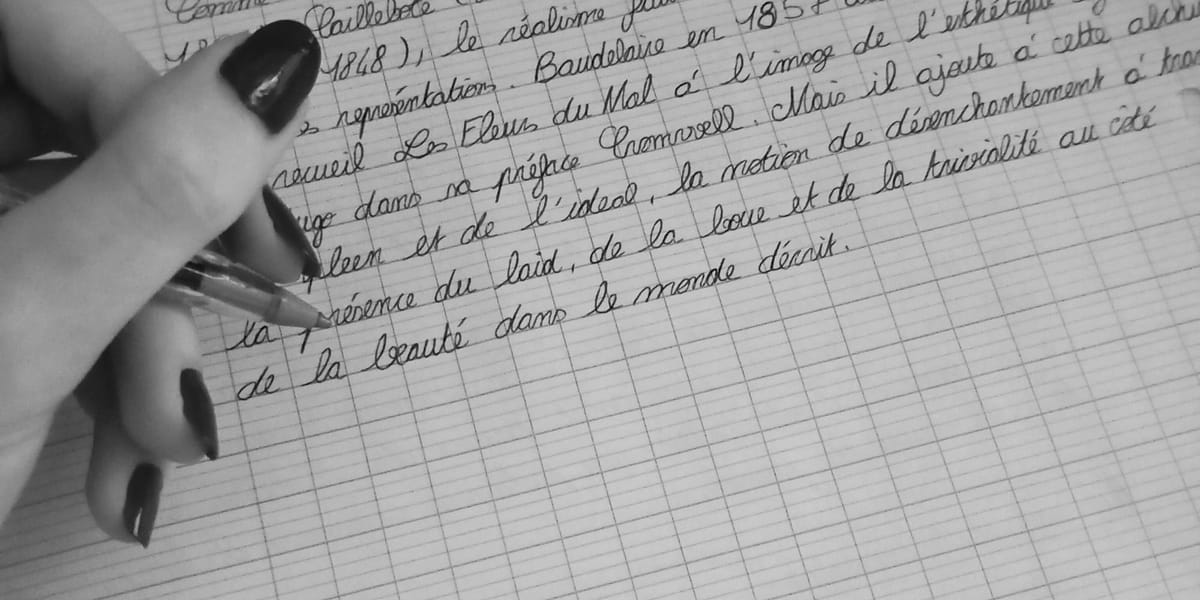 Caillebote
1848), le réalisme
représentation. Baudelaire en 1857
recueil Les Fleurs du Mal à l'image de l'esthétique
dans sa préface Cromwell. Mais il ajoute à cette
et de l'ideal, la notion de désenchantement à
la présence du laid, de la boue et de la trivialité au côté
de la beauté dans le monde décrit.